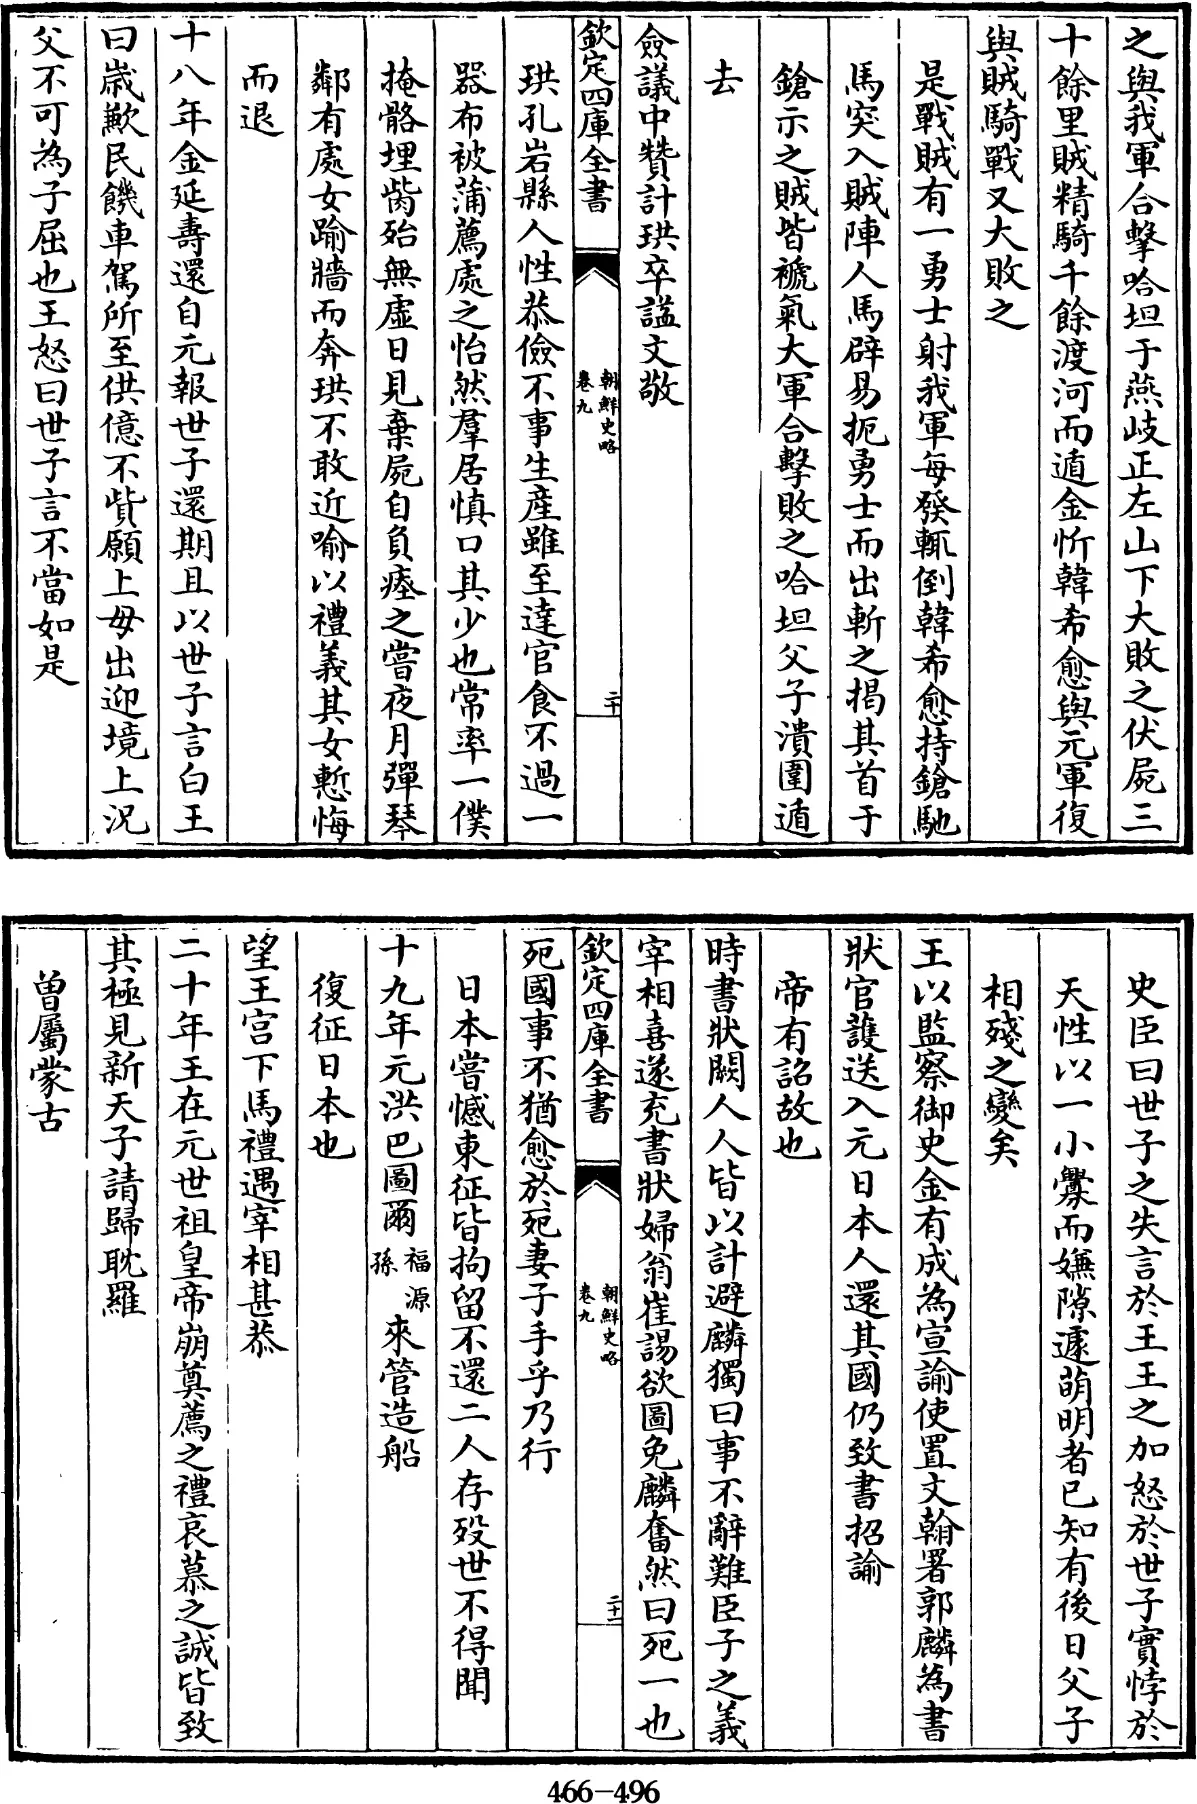 之與我軍合擊哈坦于燕岐正左山下大敗之伏屍三
十餘里賊精騎千餘渡河而遁金忻韓希愈與元軍復
與賊騎戰又大敗之
是戰賊有一勇士射我軍每發輒倒韓希愈持鎗馳
馬突入賊陣人馬辟易扼勇士而出斬之揭其首于
鎗示之賊皆褫氣大軍合擊敗之哈坦父子潰圍遁
去
僉議中贊計珙卒諡文敬
欽定四庫全書
朝鮮史略
卷九
二十
珙孔岩縣人性恭儉不事生産雖至達官食不過一
器布被蒲薦處之怡然羣居慎口其少也常率一僕
掩骼埋胔殆無虛日見棄屍自負瘞之嘗夜月彈琴
鄰有處女踰牆而奔珙不敢近喻以禮義其女慙悔
而退
十八年金延壽還自元報世子還期且以世子言白王
曰歲歉民饑車駕所至供億不貲願上毋出迎境上況
父不可為子屈也王怒曰世子言不當如是
史臣曰世子之失言於王王之加怒於世子實悖於
天性以一小釁而嫌隙遽萌明者已知有後日父子
相殘之變矣
王以監察御史金有成為宣諭使置文翰署郭麟為書
狀官護送入元日本人還其國仍致書招諭
帝有詔故也
時書狀闕人人皆以計避麟獨曰事不辭難臣子之義
宰相喜遂充書狀婦翁崔諹欲圖免麟奮然曰死一也
欽定四庫全書
朝鮮史略
卷九
二十一
死國事不猶愈於死妻子手乎乃行
日本嘗憾東征皆拘留不還二人存歿世不得聞
十九年元洪巴圖爾福源孫來管造船
復征日本也
望王宮下馬禮遇宰相甚恭
二十年王在元世祖皇帝崩奠薦之禮哀慕之誠皆致
其極見新天子請歸耽羅
曽屬蒙古
466-496